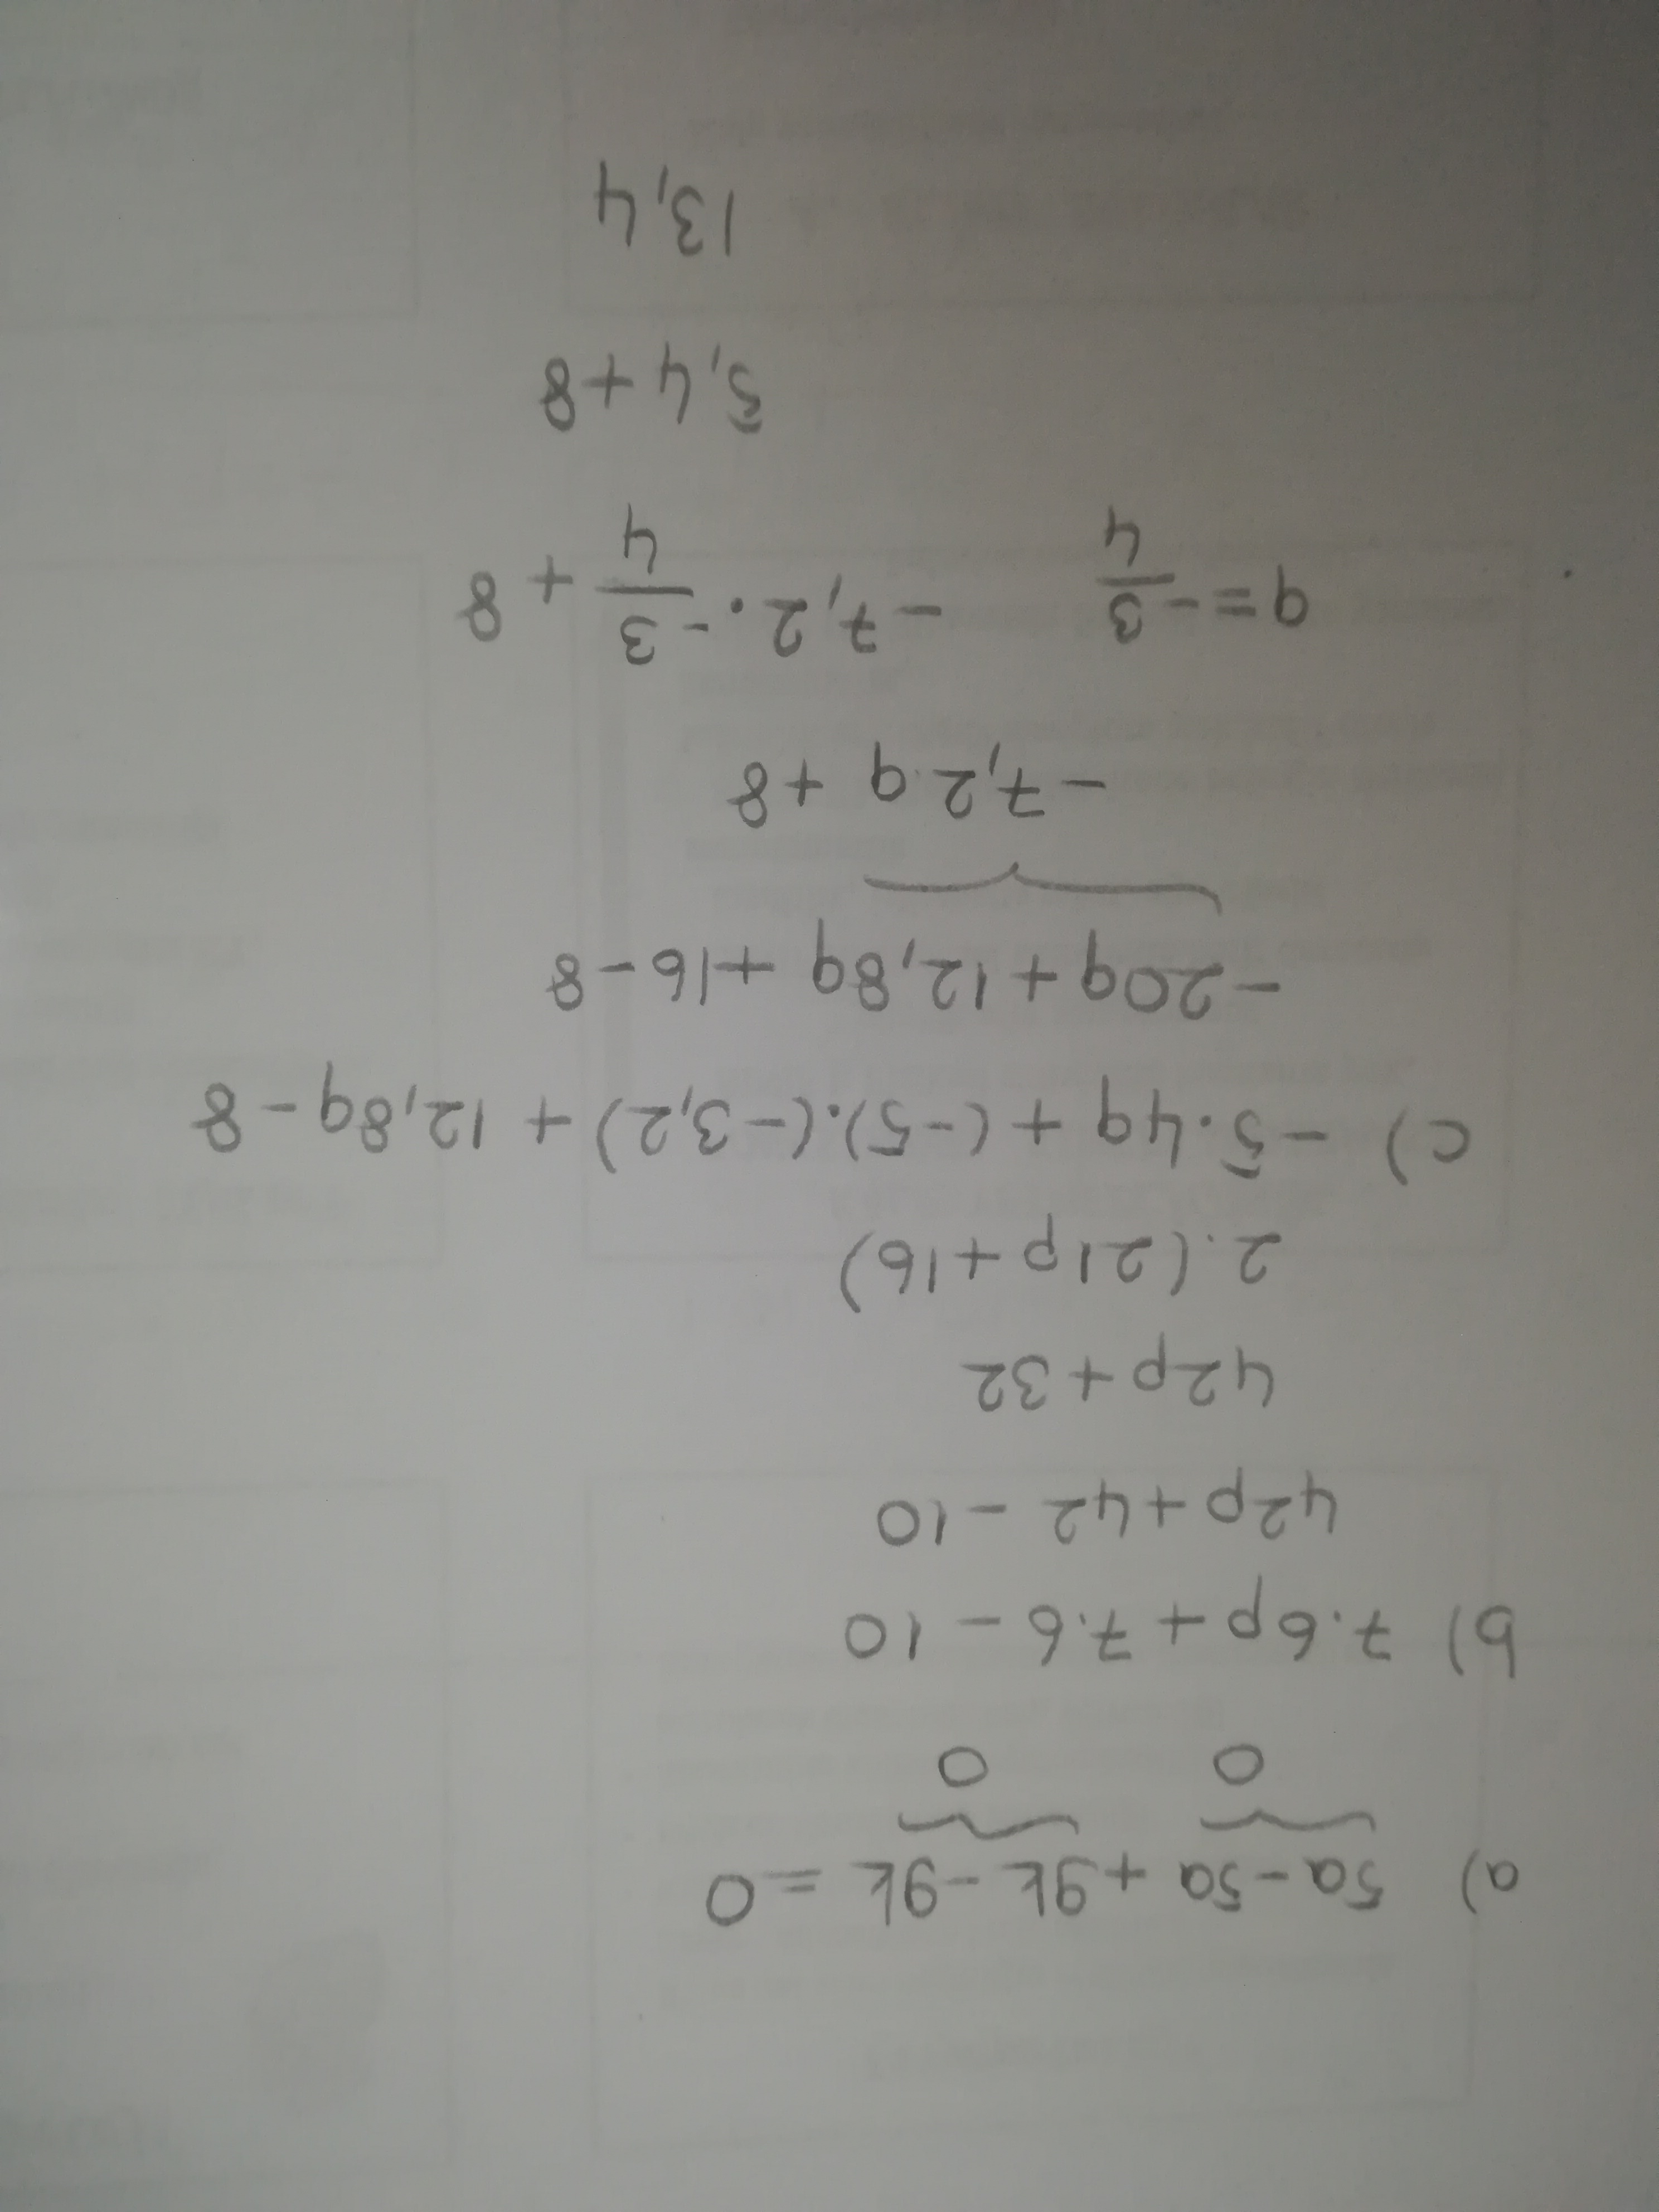 a) 5a - 5a + 9k - 9k = 0
0 0
b) 7.6p + 7.6 - 10
42p + 42 - 10
42p + 32
2.(21p + 16)
c) -5.4q + (-5).(-3,2) + 12,8q - 8
-20q + 12,8q + 16 - 8
-7,2.q + 8
q = -3/4 -7,2 . -3/4 + 8
5,4 + 8
13,4